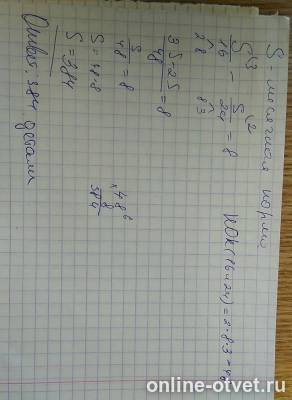 S - месячная норма
S/16 \3 - S/24 \2 = 8
НОК(16 и 24) = 2·8·3 = 48
2 8 8 3
3S-2S/48 = 8
S/48 = 8
S = 48·8
S = 384
6
× 48
8
384
Ответ: 384 детали
online-otvet.ru